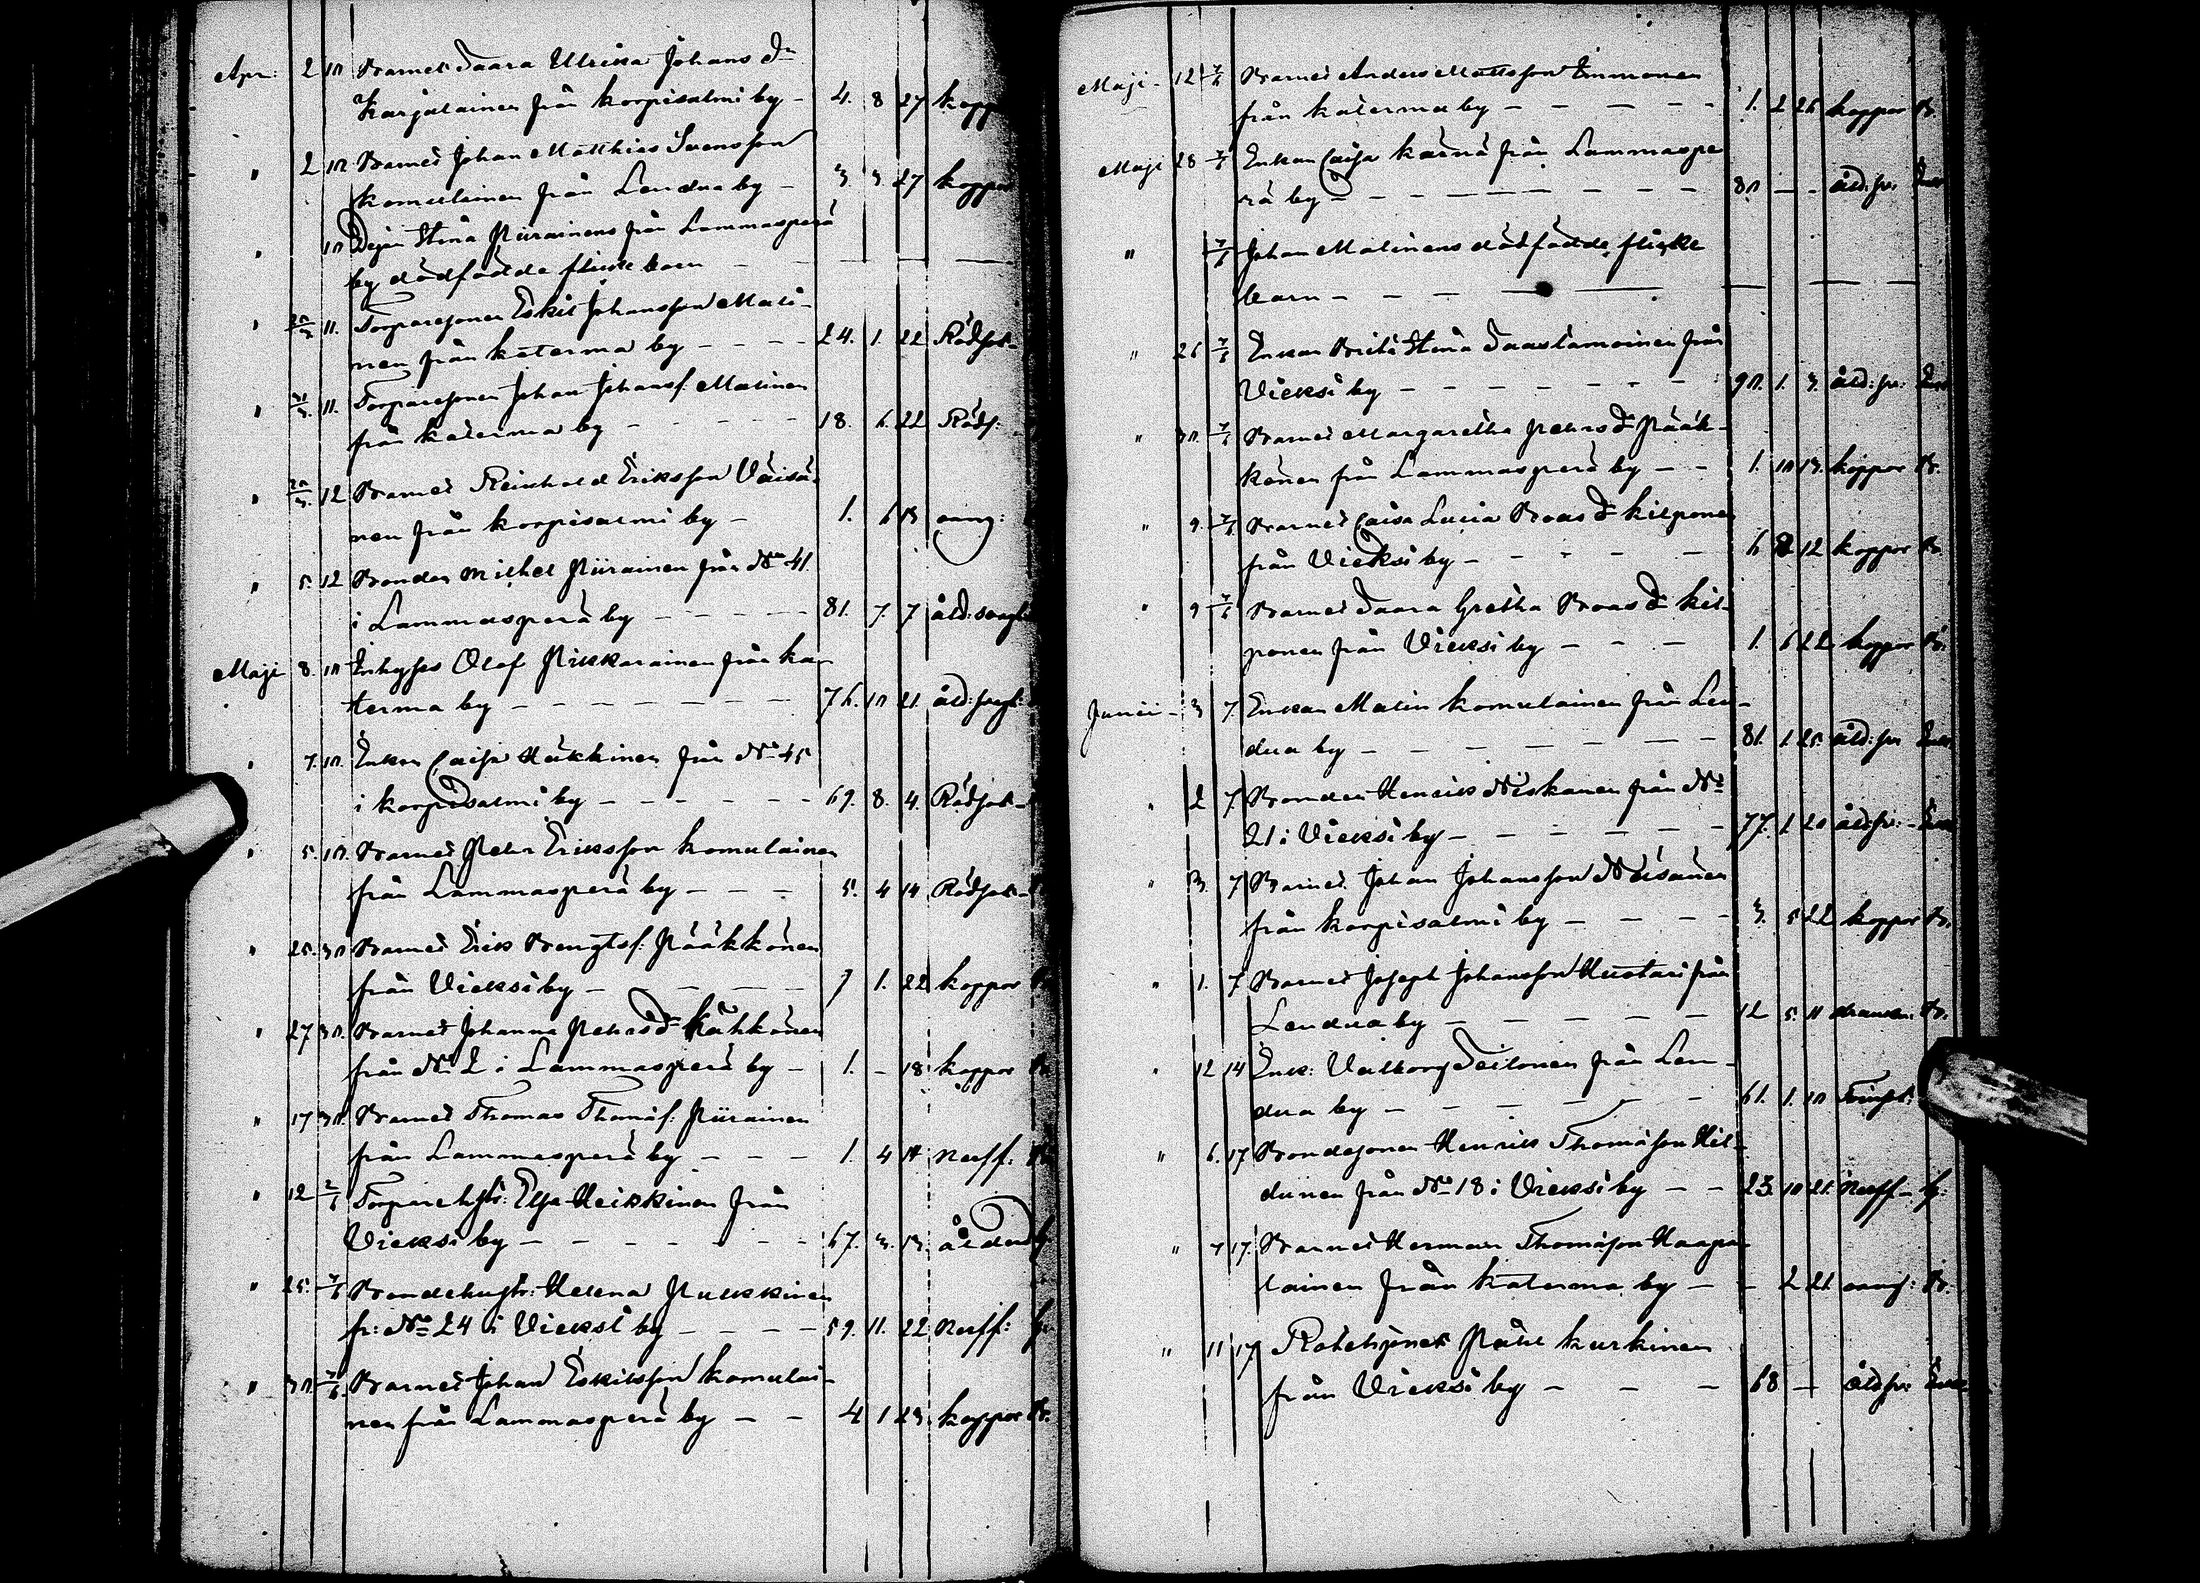 Apr: 2 10 Barnet Saara Ulrica Johans dr
Karjalainen från Korpisalmi by - 4. 8 27 kopp
" 2 10 Barnet Johan Matthias Svensson
Komulainen från Lendua by - 3 3 27 koppor
" 10 Pigan Stina Piirainens från Lammasperä
by dödfödde flick barn - - -
" 20/3 11. Torparesonen Eskil Johansson Mali-
nen från Katerma by - - - - 24. 1. 22 Rödsot-
" 31/3 11. Torparesonen Johan Johanss. Malinen
från Katerma by - - - - 18. 6. 22 Röds:
" 20/3 12 Barnet Reinhold Eriksson Väisä-
nen från Korpisalmi by - 1. 6 13 oang:
" 5. 12 Bonden Michel Piirainen från No 41
i Lammasperä by - - - - 81. 7. 7 åld: svagh
Maji 8. 10 Inhyses Olof Pikkarainen från Ka-
terma by - - - - - - - 76. 10 21. åld: svagh:
" 7. 10. Enkan Caisa Häkkinen från No 45
i Korpisalmi by - - - - - - 69. 8. 4. Rödsot-
" 5. 10. Barnet Petter Eriksson Komulainen
från Lammasperä by - - - 5. 4 14 Rödsot-
" 25. 30 Barnet Erik Bengtss: Pääkkönen
från Vieksi by - - - - 7 1. 22 koppor B.
" 27 30. Barnet Johanna Petters dr Kähkönen
från No 2 i Lammasperä by - 1. - 18 koppor B.
" 17 30. Barnet Thomas Thomss: Piirainen
från Lammasperä by - - - 1. 4 14 Nerff: B.
" 12 2/6 Torparehustr: Elsa Heikkinen från
Vieksi by - - - - - - - 67. 3. 13. ålderd
" 25. 7/6 Bondehustr: Helena Pulkkinen
fr: No 24 i Vieksi by - - - - 59. 11. 22 Nerff:
" 30. 7/6. Barnet Johan Eskilsson Komulai-
nen från Lammasperä by - - 4 1 23. koppor B.
Maji - 12 7/6 Barnet Anders Mattsson Immonen
från Katerma by - - - - - 1. 2 26 koppor B.
Maji 28 7/6 Enkan Caisa Kärnä från Lammaspe
rä by - - - - - - - - 80. - - åld: sv: Enk
" 7/6 Johan Malinens dödfödde flicke
barn - - -
" 26 7/6 Enkan Brita Stina Saastamoinen från
Vieksi by - - - - - - - - 90. 1. 3. åld: sv: Enk
" 30. 7/6 Barnet Margaretha Petters dr Pääk-
könen från Lammasperä by - - 1. 10 13. koppor B.
" 9. 7/6 Barnet Caisa Lucia Boas dr Kilponen
från Vieksi by - - - - - 6 8 12 koppor B.
" 9 7/6 Barnet Saara Gretha Boas dr Kil-
ponen från Vieksi by - - - 1. 6 22 koppor B.
Junii - 3 7. Enkan Malin Komulainen från Len-
dua by - - - - - - - 81. 1. 25. åld: sv Enk.
" 2 7. Bonden Henrik Niskanen från No
21 i Vieksi by - - - - - - 77. 1. 20 åld: sv: - Enk
" 3. 7 Barnet Johan Johansson Väisänen
från Korpisalmi by - - - - 3. 5 22 koppor B.
" 1. 7 Barnet Joseph Johansson Huotari från
Lendua by - - - - - - 12 5. 11 drunkn: B.
" 12 14 Enk: Valborg Teilonen från Len-
dua by - - - - - - 61. 1. 10
" 6. 17 Bondesonen Henrik Thomsson Hil-
dunen från No 18 i Vieksi by - - 23. 10 21. Nerff-
" 7 17. Barnet Herman Thomsson Haapa-
lainen från Katerma by - - 2 21 oang: B.
" 11 17 Rotehjonet Påhl Kurkinen
från Vieksi by - - - 68 - åld: sv: Enk